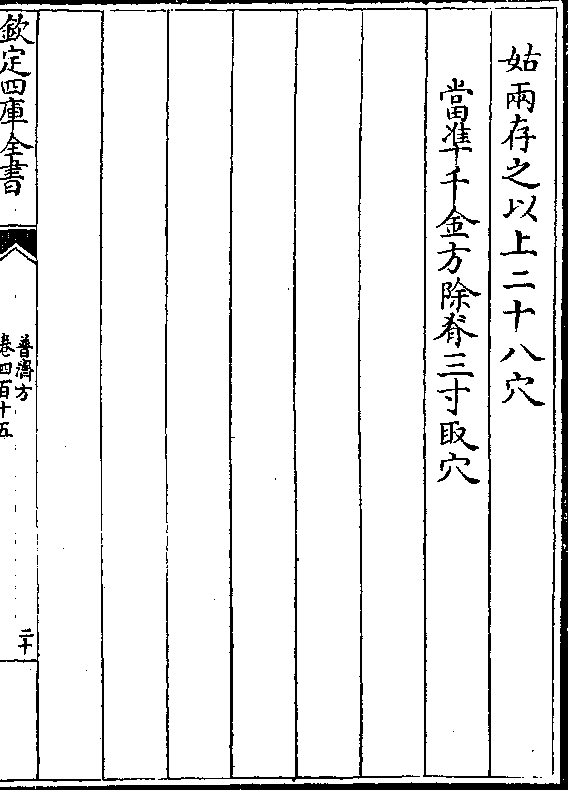 姑兩存之以上二十八穴
當準千金方除脊三寸取穴
欽定四庫全書
普濟方
卷四百十五
二十